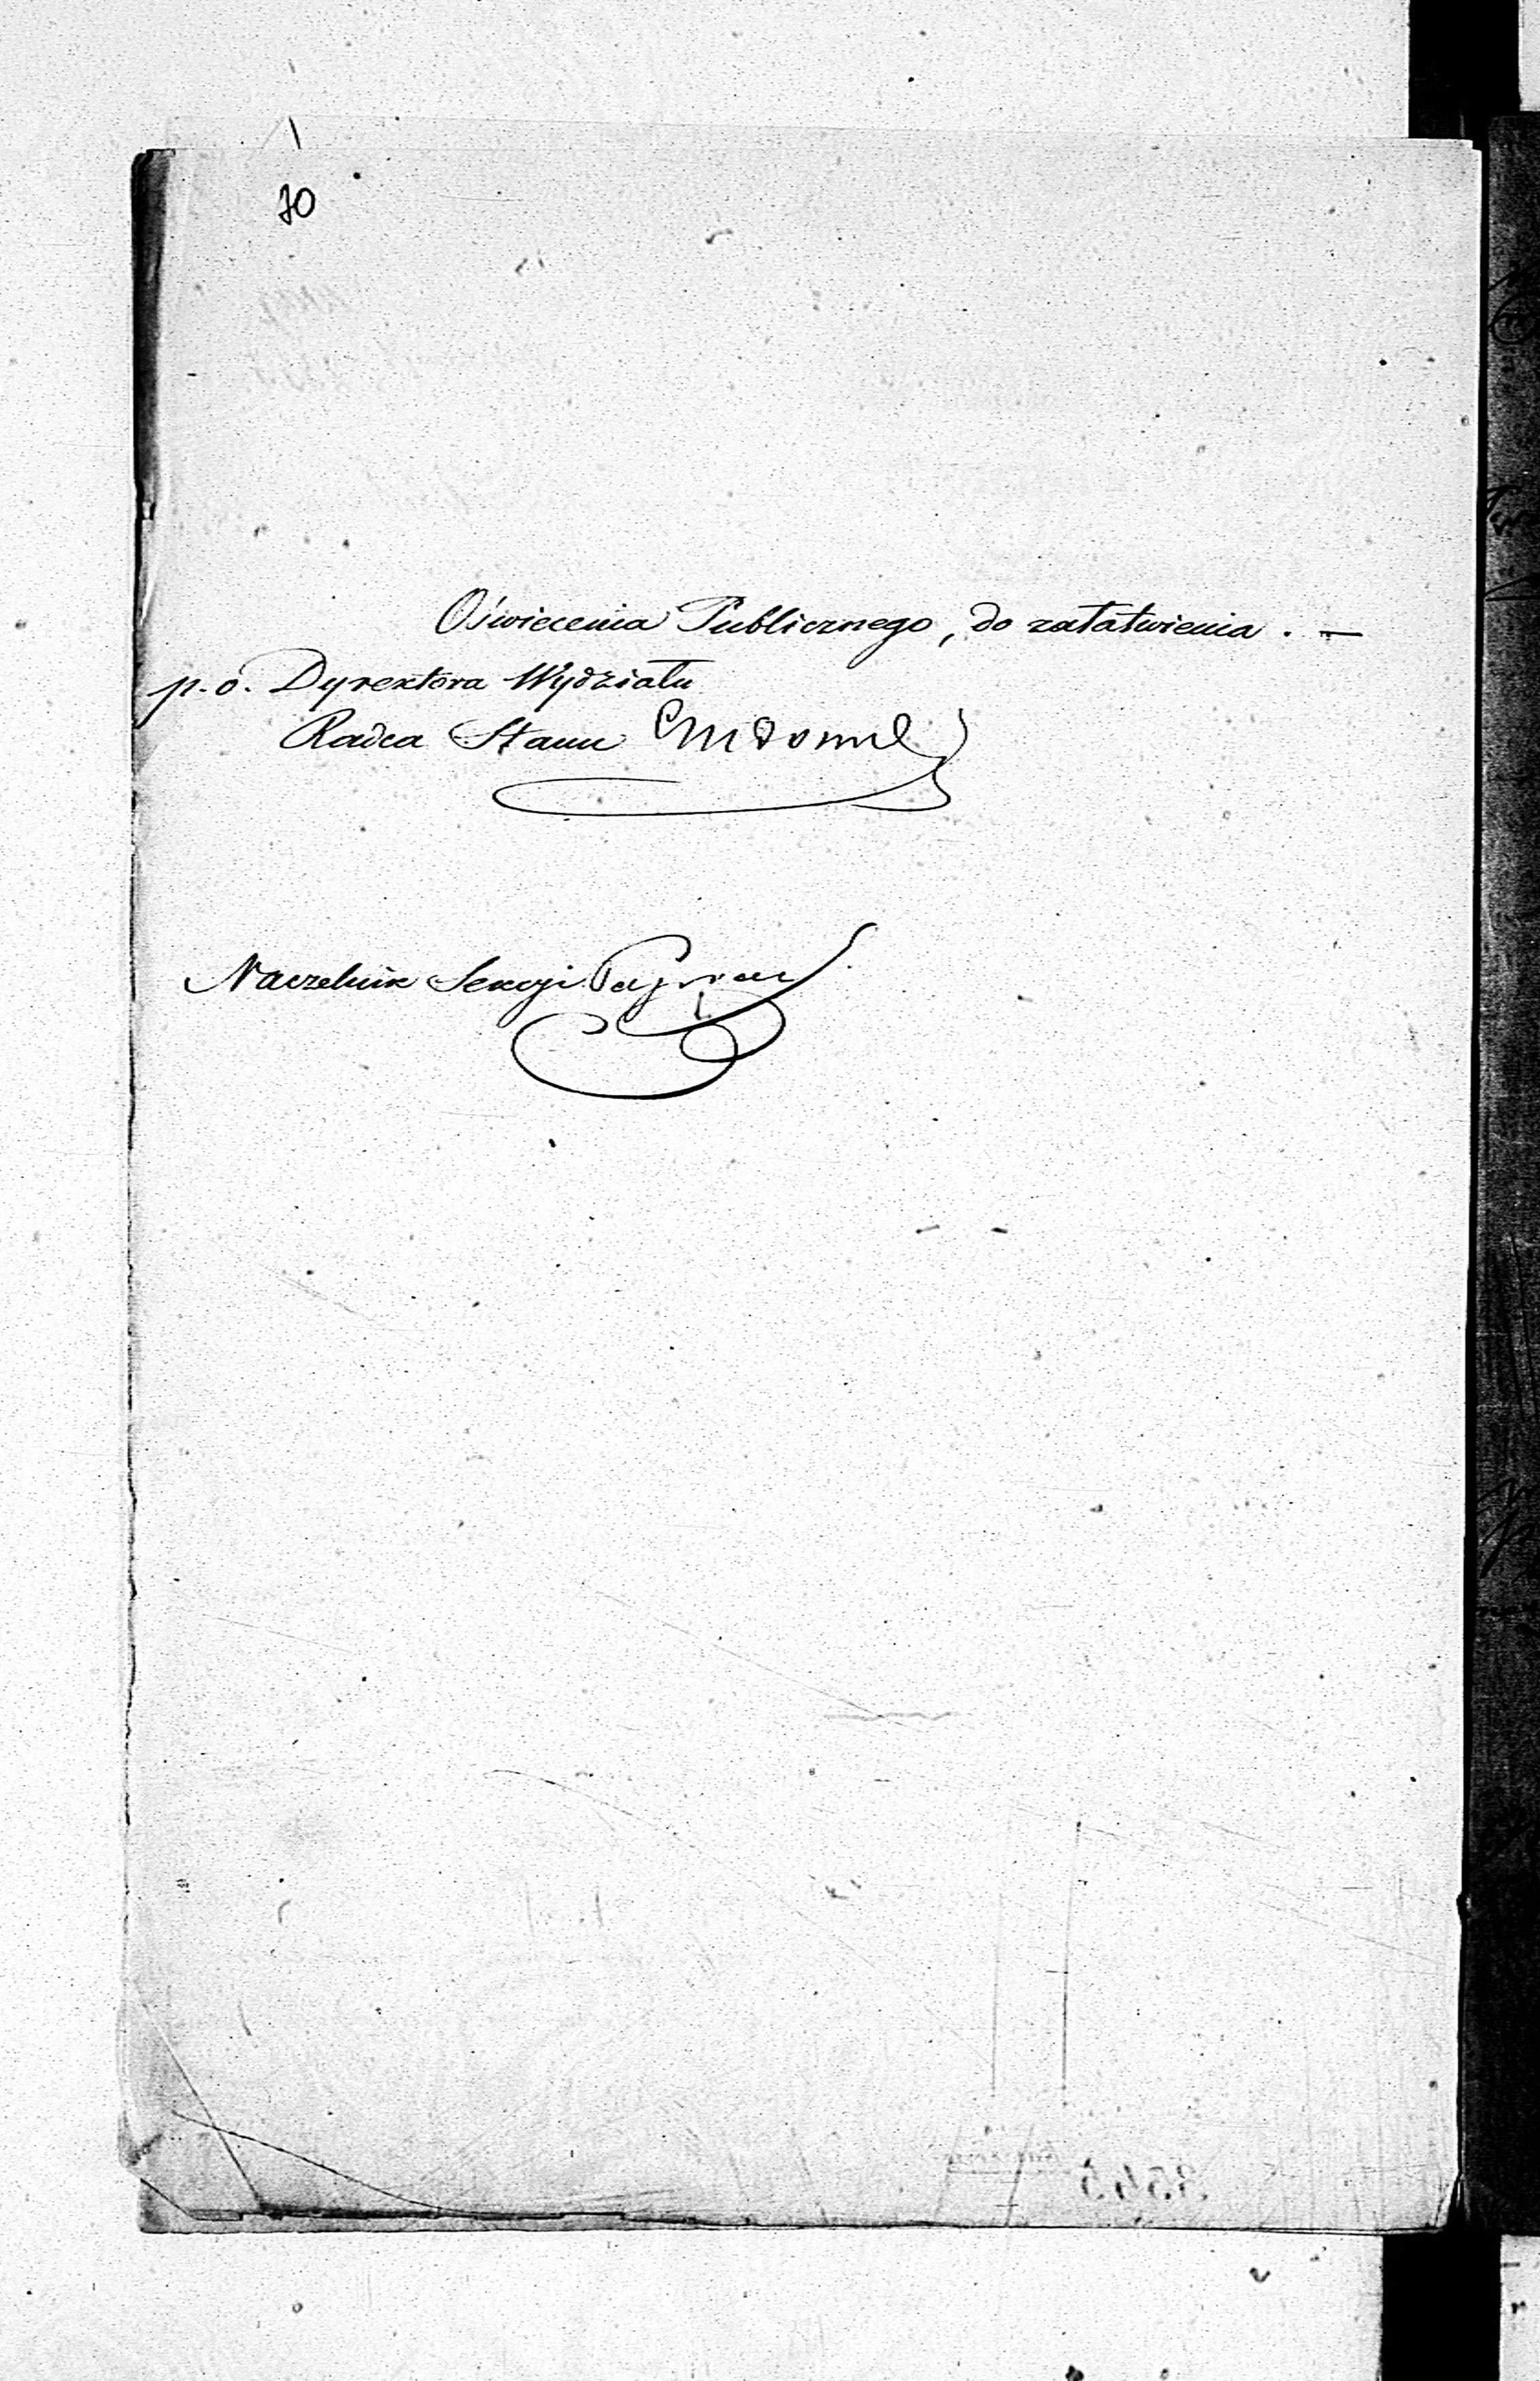 70
Oświecenia Publicznego, do załatwienia. —
p. o. Dyrektora Wydziału
Radca Stanu
Naczelnik Sekcyi